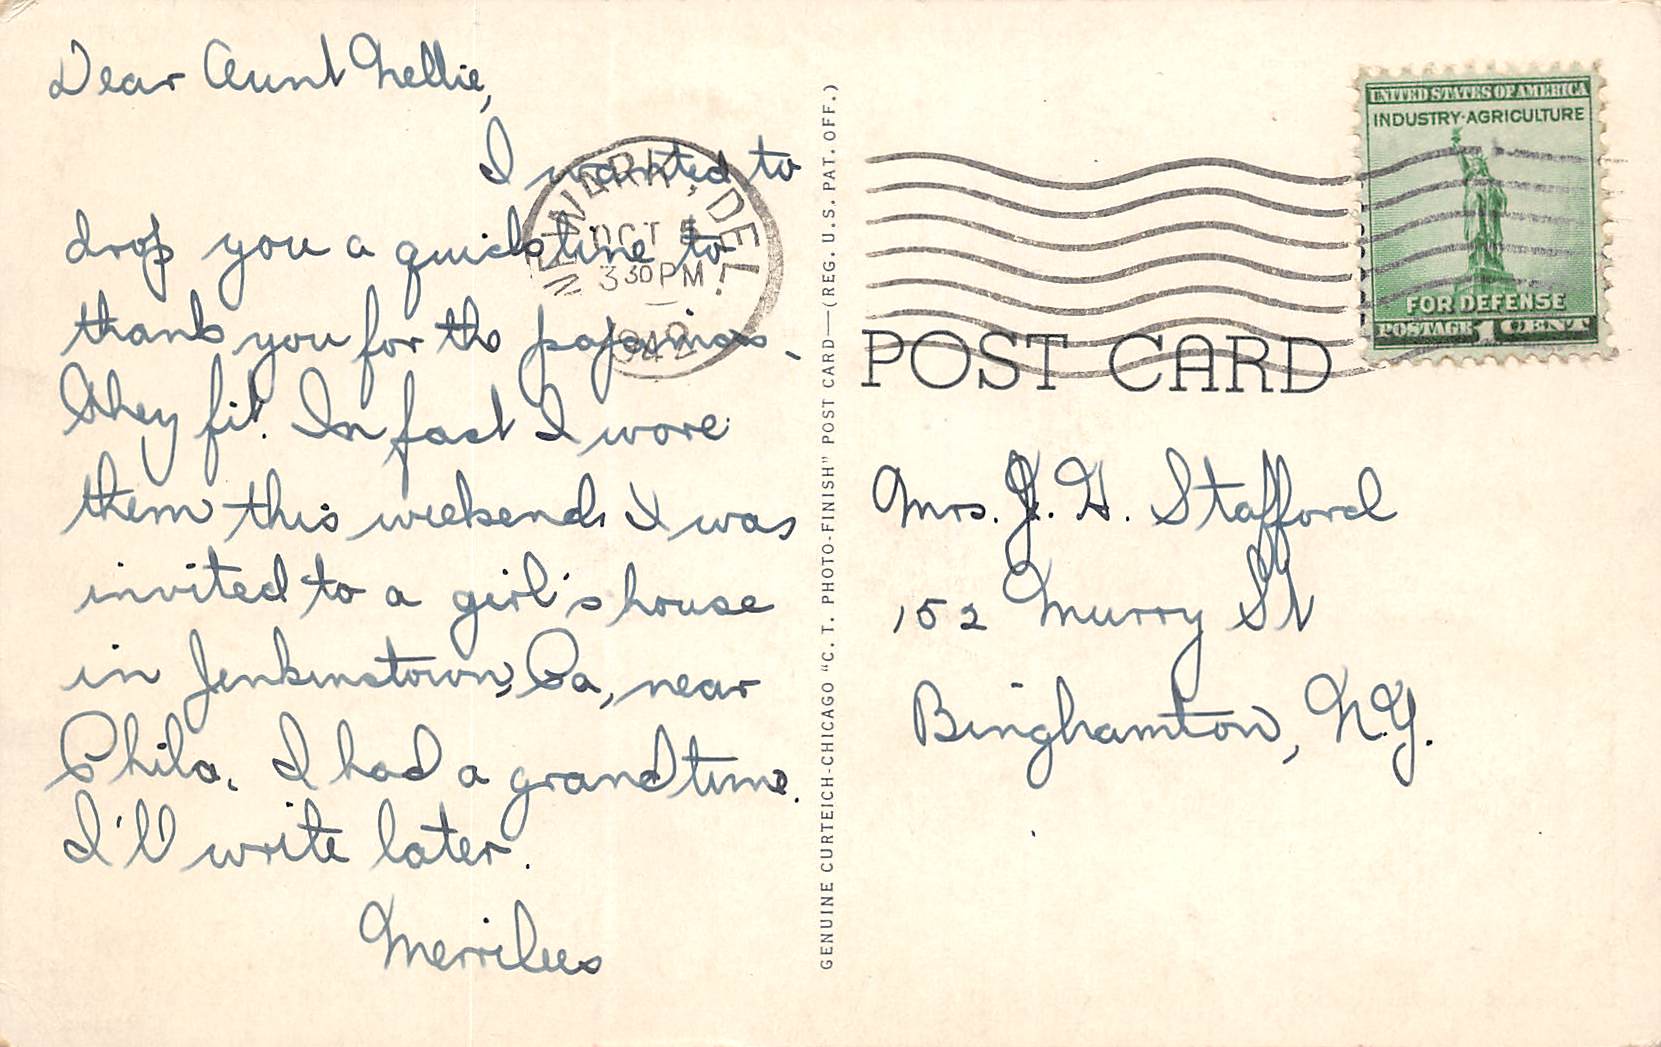 Dear Aunt Nellie,
I wanted to
drop you a quick line to
thank you for the pajamas.
They fit. In fact I wore
them this weekend. I was
invited to a girl's house
in Jenkinstown, Pa, near
Phila. I had a grand time.
I'll write later.
Merrilees
NEWARK, DEL.
OCT
3 30 PM
1942
GENUINE CURTEICH-CHICAGO "C. T. PHOTO-FINISH" POST CARD—(REG. U. S. PAT. OFF.)
UNITED STATES OF AMERICA
INDUSTRY·AGRICULTURE
FOR DEFENSE
POSTAGE 1 CENT
POST CARD
Mrs. J. H. Stafford
152 Murry St
Binghamton, N.Y.